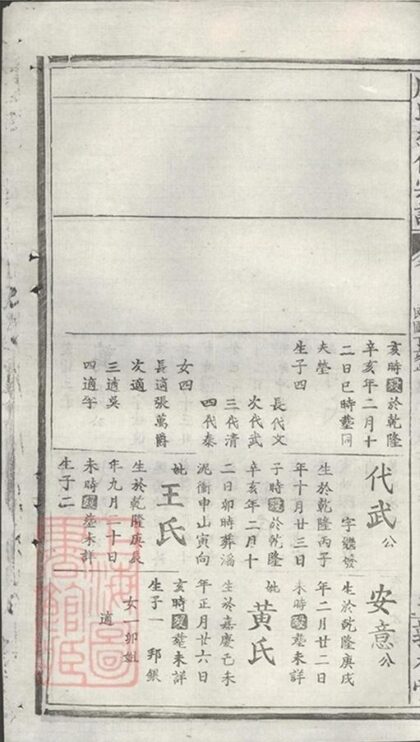 亥時歿於乾隆
辛亥年二月十
二日巳時塟同
夫塋
生子四
長代文
次代武
三代清
四代泰
女四
長適張萬爵
次適
三適吳
四適牟
代武公
字繼發
生於乾隆丙子
年十月廿三日
子時歿於乾隆
辛亥年二月十
二日卯時葬潘
泥衝申山寅向
妣王氏
生於乾隆庚辰
年九月二十日
未時歿塟未詳
生子二
安意公
生於乾隆庚戌
年二月廿二日
未時歿塟未詳
妣黃氏
生於嘉慶己未
年正月廿六日
亥時歿塟未詳
生子一 邦銀
女一卯姐
適